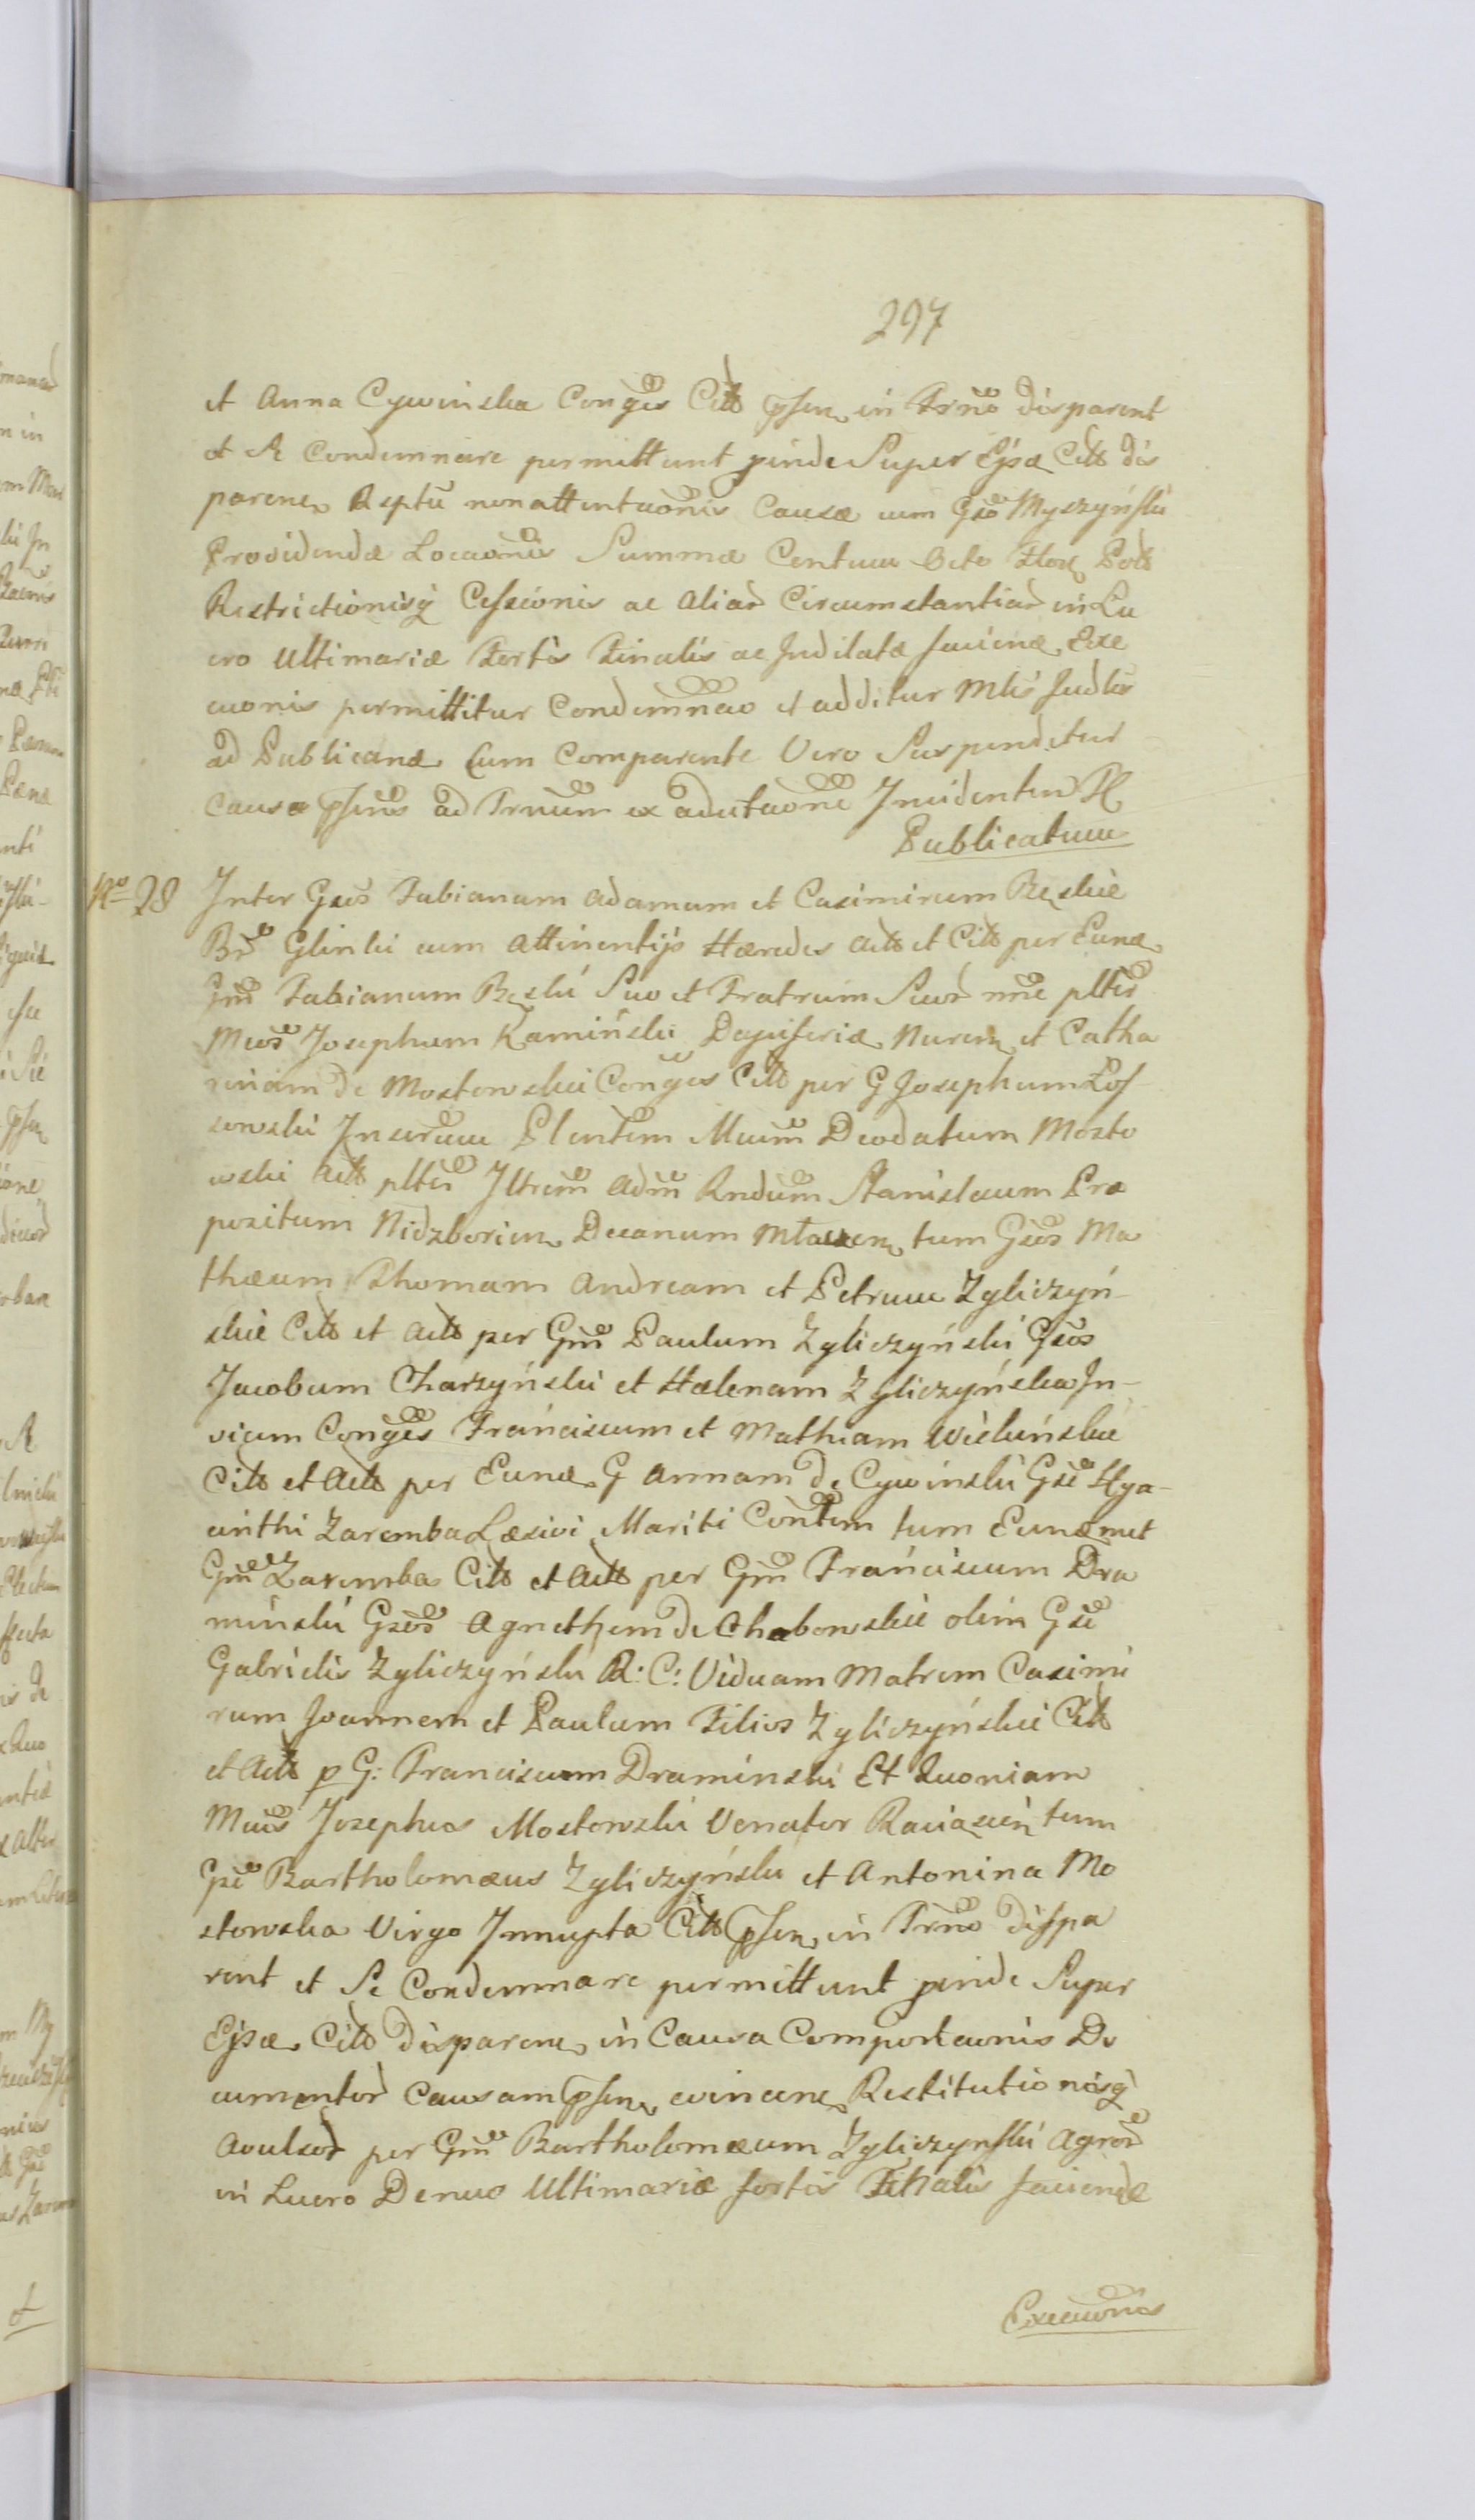 297
et Anna Cywinska Conges Citt in Trno disparent
et Se Condemnare permittunt proinde Super Ejsdem Citt dis
paren Reptu non attentaonis Causæ cum Gso Myszyński
Providendæ Locaonis Summæ Centum Octo Flor Poll
Restrictionisq Cessionis ac Aliar Circumstantiar in Lu
cro Ultimariæ Fortis Finalis ac Judicatæ faciend Exe
cuonis permittitur Condemnao et additur Mlis Judlis
ad Publicand Cum Comparente Vero Suspenditur
Causa psens ad Trnum ex adcitaone Incidenten
Publicatum
No 28 Inter Gsos Fabianum Adamum et Casimirum Rzeskie
Br Glinki cum Attinentijs Hæredes Actt et Citt per Eund
Gm Fabianum Rzeski Suo et Fratrum Suor nne plter
Mcos Josephum Kamiński Dapiferid Nuren et Catha
rinam de Mostowskie Conges Citt per G Josephum Los
sowski Juratum Plentem Mcum Deodatum Mosto
wski Actt plter Illrem Adm Rndum Stanislaum Præ
positum Nidzborien Decanum Mlaven tum Gsos Ma
thæum Thomam Andream et Petrum Zgliczyń
skie Citt et Actt per Gm Paulum Zgliczyński Gsos
Jacobum Charzyński et Helenam Zgliczyńska In
vicem Conges Franciscum et Mathiam Wieluńskie
Citt et Actt per Eund G Annam de Cywinski Gsi Hya
cinthi Zaremba Læsivi Mariti Contem tum Eundmet
Gm Zaremba Citt et Actt per Gm Franciscum Dra
minski Gsos Agnethem de Chabowskie olim Gsi
Gabrielis Zgliczyński R: C: Viduam Matrem Casimi
rum Joannem et Paulum Filios Zgliczyńskie Citt
et Actt p G: Franciscum Draminski Et Quoniam
Mcus Josephus Mostowski Venator Raciazien tum
Gsi Bartholomæus Zgliczyński et Antonina Mo
stowska Virgo Innupta Citt psen in Trno dispa
rent et Se Condemnare permittunt proinde Super
Ejsd Citt disparen in Causa Comportaonis Do
cumentor Causam psen evincen Restitutionisq
Avulsor per Gm Bartholomæum Zgliczyński Agror
in Lucro Denuo Ultimariæ fortis Finalis faciendæ
Execuonis